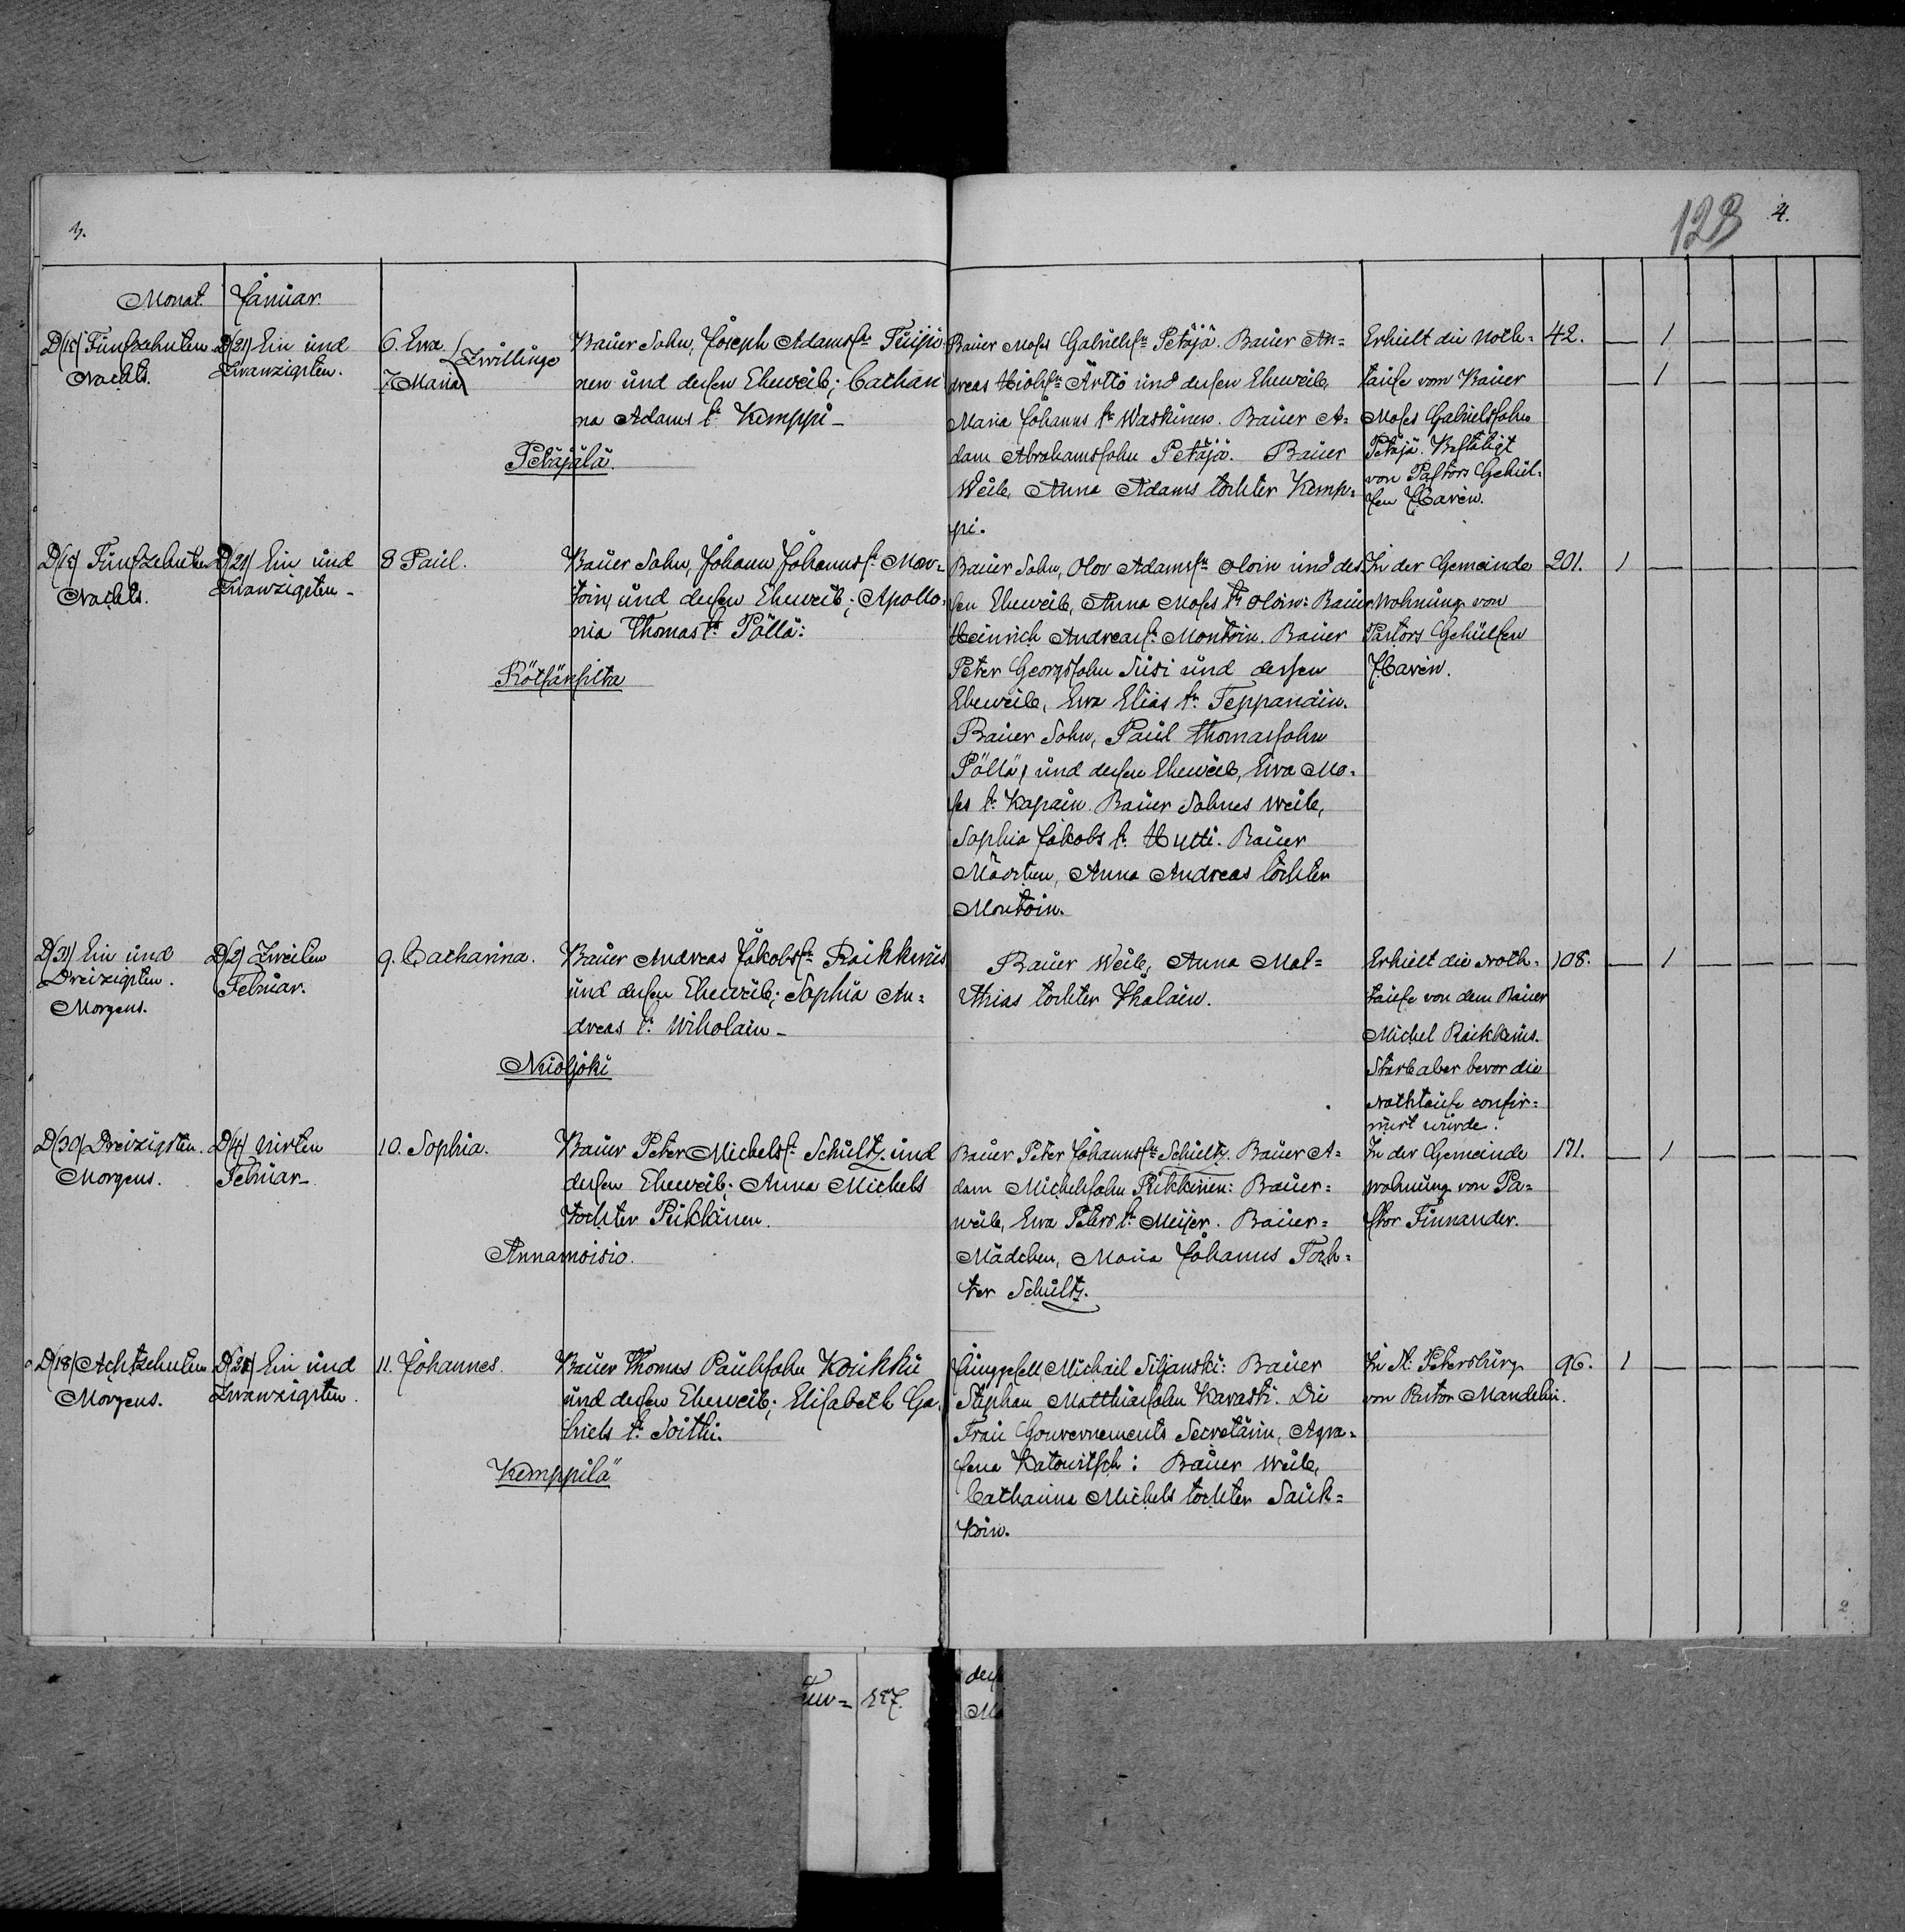 3.
128 4.
Monat. Januar.
D(15) Fünfzehnten Nachts.
D(21) Ein und Zwanzigsten.
6. Ewa
7. Maria
Zwillinge
Bauer Sohn, Joseph Adamssn
nen und dessen Eheweib; Cathari
na Adams tr Kemppi_
Petäjälä.
Bauer Moses Gabrielssn Petäjä. Bauer An=
dreas Hiobssn Ärttö und dessen Eheweib,
Maria Johanns tr Waskinen. Bauer A=
dam Abrahamssohn Petäjä. Bauer
Weib, Anna Adams tochter Kemp=
pi.
Erhielt die Noth=
taufe vom Bauer
Moses Gabrielssohn
Petäjä. Bestätigt
von Pastors Gehül=
fen Haven.
42. — 1 — — — —
— 1 — — — —
D(15) Fünfzehnten
Nachts.
D(21) Ein und
Zwanzigsten_
8 Paul.
Bauer Sohn, Johann Johannss. Mon=
toin, und dessen Eheweib; Apollo=
nia Thomas tr Pöllä:
Bauer Sohn, Olov Adamssn Oloin und des
sen Eheweib, Anna Moses tr Oloin: Bauer
Heinrich Andreass. Montoin. Bauer
Peter Georgssohn Susi und dessen
Eheweib, Ewa Elias tr. Teppanain.
Bauer Sohn, Paul Thomassohn
Pöllä, und dessen Eheweib, Ewa Mo=
ses tr. Kapain. Bauer Sohnes Weib,
Sophia Jakobs tr. Hytti. Bauer
Mädchen, Anna Andreas tochter
Montoin.
In der Gemeinde
Wohnung von
Pastors Gehülfen
Haven.
201. 1 — — — — —
D(31) Ein und
Dreizigsten.
Morgens.
D(2) Zweiten
Februar.
9. Catharina.
Bauer Andreas Jakobssn Raikkines
und dessen Eheweib; Sophia An=
dreas tr. Wiholain_
Nuoljoki
Bauer Weib, Anna Mat=
thias tochter Ihalain.
Erhielt die Noth=
taufe von dem Bauer
Michel Raikkines.
Starb aber bevor die
Nothtaufe confir=
mirt wurde.
108. — 1 — — — —
D(30) Dreizigsten.
Morgens.
D(4) Virten
Februar_
10. Sophia.
Bauer Peter Michelss. Schultz. und
dessen Eheweib; Anna Michels
tochter Pükkänen.
Annamoisio.
Bauer Peter Johannssn Schultz. Bauer A=
dam Michelssohn Rikkinen: Bauer=
weib, Ewa Peters tr. Meijer. Bauer=
Mädchen, Maria Johanns Toch=
ter Schultz.
In der Gemeinde
wohnung von Pa=
stor Finnander.
171. — 1 — — — —
D(18) Achtzehnten
Morgens.
D(21) Ein und
Zwanzigsten.
11. Johannes.
Bauer Thomas Paulssohn Koukku
und dessen Eheweib; Elisabeth Ga=
briels tr. Soitti.
Kemppilä
Junggesell Michail Siljanski: Bauer
Stephan Matthiassohn Karasti. Die
Frau Gouvernements Secretärin, Agra=
fena Katowitsch: Bauer Weib,
Catharina Michels tochter Sauk=
koin.
In St. Petersburg
von Pastor Mandelin.
96. 1 — — — — —
2
157.